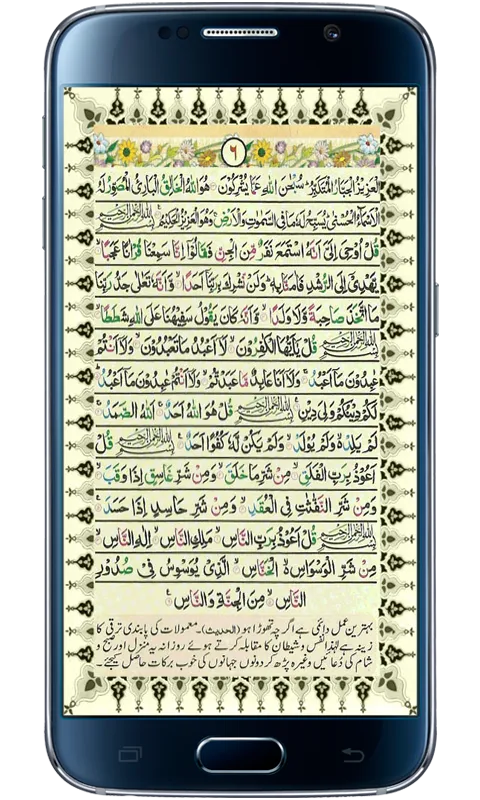 ٦
الْعَزِيْزُ الْجَبَّارُ الْمُتَكَبِّرُ ؕ سُبْحٰنَ اللّٰهِ عَمَّا يُشْرِكُوْنَ ۝ هُوَ اللّٰهُ الْخَالِقُ الْبَارِئُ الْمُصَوِّرُ لَهُ
الْاَسْمَآءُ الْحُسْنٰى ؕ يُسَبِّحُ لَهٗ مَا فِی السَّمٰوٰتِ وَالْاَرْضِ ۚ وَهُوَ الْعَزِيْزُ الْحَكِيْمُ ۝ بِسْمِ اللّٰهِ الرَّحْمٰنِ الرَّحِيْمِ
قُلْ اُوْحِیَ اِلَیَّ اَنَّهُ اسْتَمَعَ نَفَرٌ مِّنَ الْجِنِّ فَقَالُوْۤا اِنَّا سَمِعْنَا قُرْاٰنًا عَجَبًا ۝
يَّهْدِیْۤ اِلَی الرُّشْدِ فَاٰمَنَّا بِهٖ ؕ وَلَنْ نُّشْرِكَ بِرَبِّنَاۤ اَحَدًا ۝ وَّاَنَّهٗ تَعٰلٰى جَدُّ رَبِّنَا
مَا اتَّخَذَ صَاحِبَةً وَّلَا وَلَدًا ۝ وَّاَنَّهٗ كَانَ يَقُوْلُ سَفِيْهُنَا عَلَى اللّٰهِ شَطَطًا ۝
بِسْمِ اللّٰهِ الرَّحْمٰنِ الرَّحِيْمِ قُلْ يٰۤاَيُّهَا الْكٰفِرُوْنَ ۝ لَاۤ اَعْبُدُ مَا تَعْبُدُوْنَ ۝ وَلَاۤ اَنْتُمْ
عٰبِدُوْنَ مَاۤ اَعْبُدُ ۝ وَلَاۤ اَنَا عَابِدٌ مَّا عَبَدْتُّمْ ۝ وَلَاۤ اَنْتُمْ عٰبِدُوْنَ مَاۤ اَعْبُدُ ۝
لَكُمْ دِيْنُكُمْ وَلِیَ دِيْنِ ۝ بِسْمِ اللّٰهِ الرَّحْمٰنِ الرَّحِيْمِ قُلْ هُوَ اللّٰهُ اَحَدٌ ۝ اَللّٰهُ الصَّمَدُ ۝
لَمْ يَلِدْ ۙ وَلَمْ يُوْلَدْ ۝ وَلَمْ يَكُنْ لَّهٗ كُفُوًا اَحَدٌ ۝ بِسْمِ اللّٰهِ الرَّحْمٰنِ الرَّحِيْمِ قُلْ
اَعُوْذُ بِرَبِّ الْفَلَقِ ۝ مِنْ شَرِّ مَا خَلَقَ ۝ وَمِنْ شَرِّ غَاسِقٍ اِذَا وَقَبَ ۝
وَمِنْ شَرِّ النَّفّٰثٰتِ فِی الْعُقَدِ ۝ وَمِنْ شَرِّ حَاسِدٍ اِذَا حَسَدَ ۝
بِسْمِ اللّٰهِ الرَّحْمٰنِ الرَّحِيْمِ قُلْ اَعُوْذُ بِرَبِّ النَّاسِ ۝ مَلِكِ النَّاسِ ۝ اِلٰهِ النَّاسِ ۝
مِنْ شَرِّ الْوَسْوَاسِ ۙ الْخَنَّاسِ ۝ الَّذِیْ يُوَسْوِسُ فِیْ صُدُوْرِ
النَّاسِ ۝ مِنَ الْجِنَّةِ وَالنَّاسِ ۝
بہترین عمل دائمی ہے اگرچہ تھوڑا ہو (الحدیث)۔ معمولات کی پابندی ترقی کا
زینہ ہے لہٰذا نفس و شیطان کا مقابلہ کرتے ہوئے روزانہ یہ منزل اور صبح و
شام کی دُعائیں وغیرہ پڑھ کر دونوں جہانوں کی خوب برکات حاصل کیجئے۔